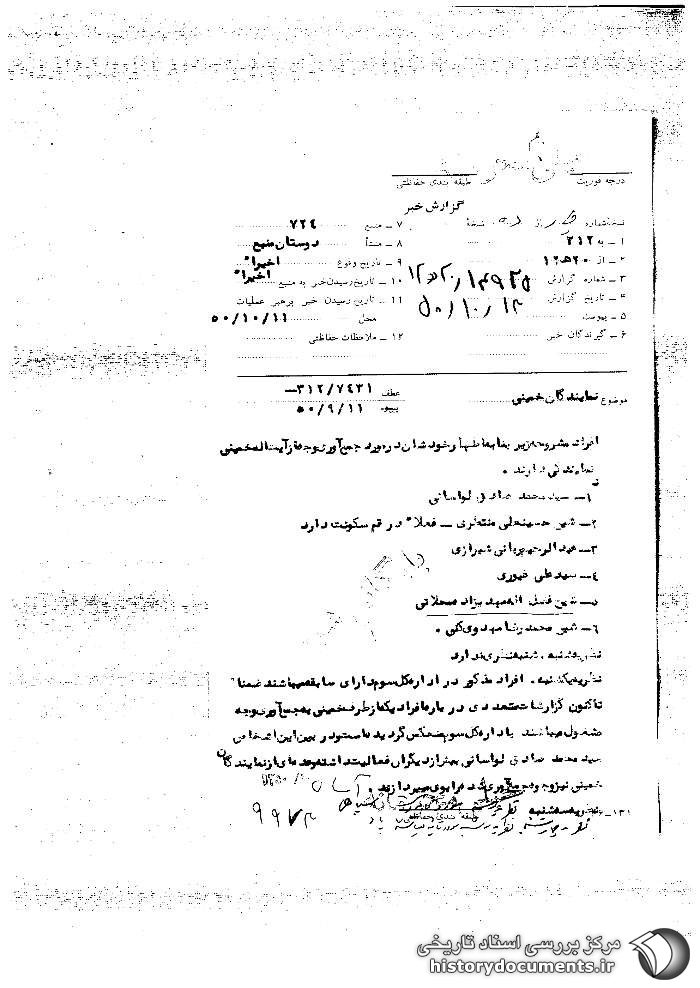 درجه فوریت
طبقه بندی حفاظتی
گزارش خبر
نسخه شماره از نسخه
۱ ـ به ۳۱۲
۲ ـ از ۲۰ﻫ۱۲
۳ ـ شماره گزارش
۴ ـ تاریخ گزارش ۵۰/۱۰/۱۲
۵ ـ پیوست
۶ ـ گیرندگان خبر
۷ ـ منبع ۷۲۴
۸ ـ منشأ دوستان منبع
۹ ـ تاریخ وقوع اخیراً
۱۰ ـ تاریخ رسیدن خبر به منبع اخیراً
۱۱ ـ تاریخ رسیدن خبر برهبر عملیات
محل ۵۰/۱۰/۱۱
۱۲ ـ ملاحظات حفاظتی
موضوع نمایندگان خمینی
عطف ۳۱۲/۷۴۳۱
پیرو ۵۰/۹/۱۱
افراد مشروحه زیر بنا به اظهار خودشان در مورد جمع آوری وجوه از آیت اله خمینی
نمایندگی دارند .
۱ــ سید محمد صادق لواسانی
۲ــ شیخ حسینعلی منتظری ــ فعلاً در قم سکونت دارد
۳ــ عبدالرحیم ربانی شیرازی
۴ــ سید علی غیوری
۵ــ شیخ فضل اله مهدیزاد محلاتی
۶ــ شیخ محمد رضا مهدوی کنی .
نظریه شنبه . شنبه نظری ندارد
نظریه یکشنبه . افراد مذکور در اداره کل سوم دارای سابقه میباشند ضمناً
تاکنون گزارشات متعددی در باره افرادیکه از طرف خمینی به جمع آوری وجه
مشغول میباشند باداره کل سوم منعکس گردیده است و در بین این اشخاص
سید محمد صادق لواسانی بیش از دیگران فعالیت داشته و عده ای از نمایندگان
خمینی نیز وجوه جمع آوری شده را بوی میپردازند .
نظریه سه شنبه
طبقه بندی حفاظتی
۹۹۷۳
مرکز بررسی اسناد تاریخی
historydocuments.ir